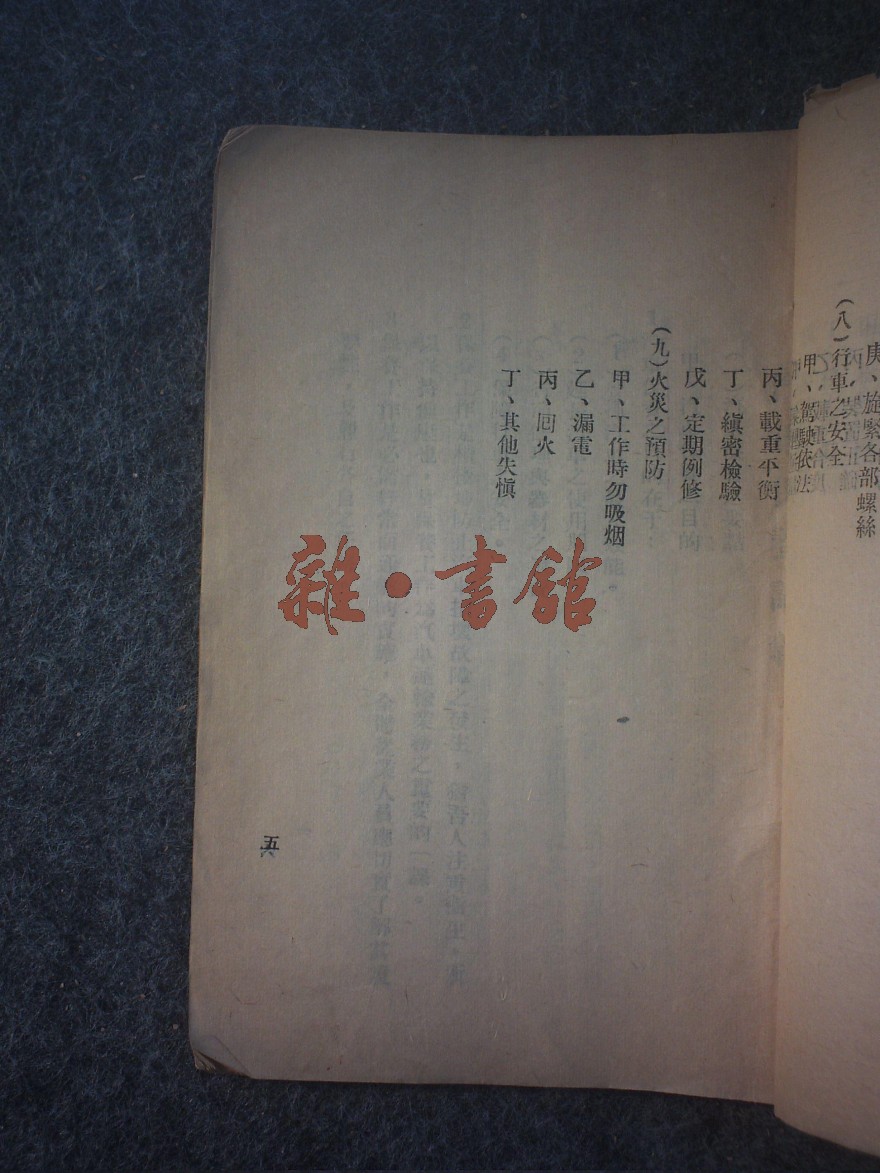 庚、旋緊各部螺絲
（八）行車之安全
甲、駕駛依法
丙、載重平衡
丁、縝密檢驗
戊、定期例修
（九）火災之預防
甲、工作時勿吸烟
乙、漏電
丙、回火
丁、其他失慎
五六
雜·書舘